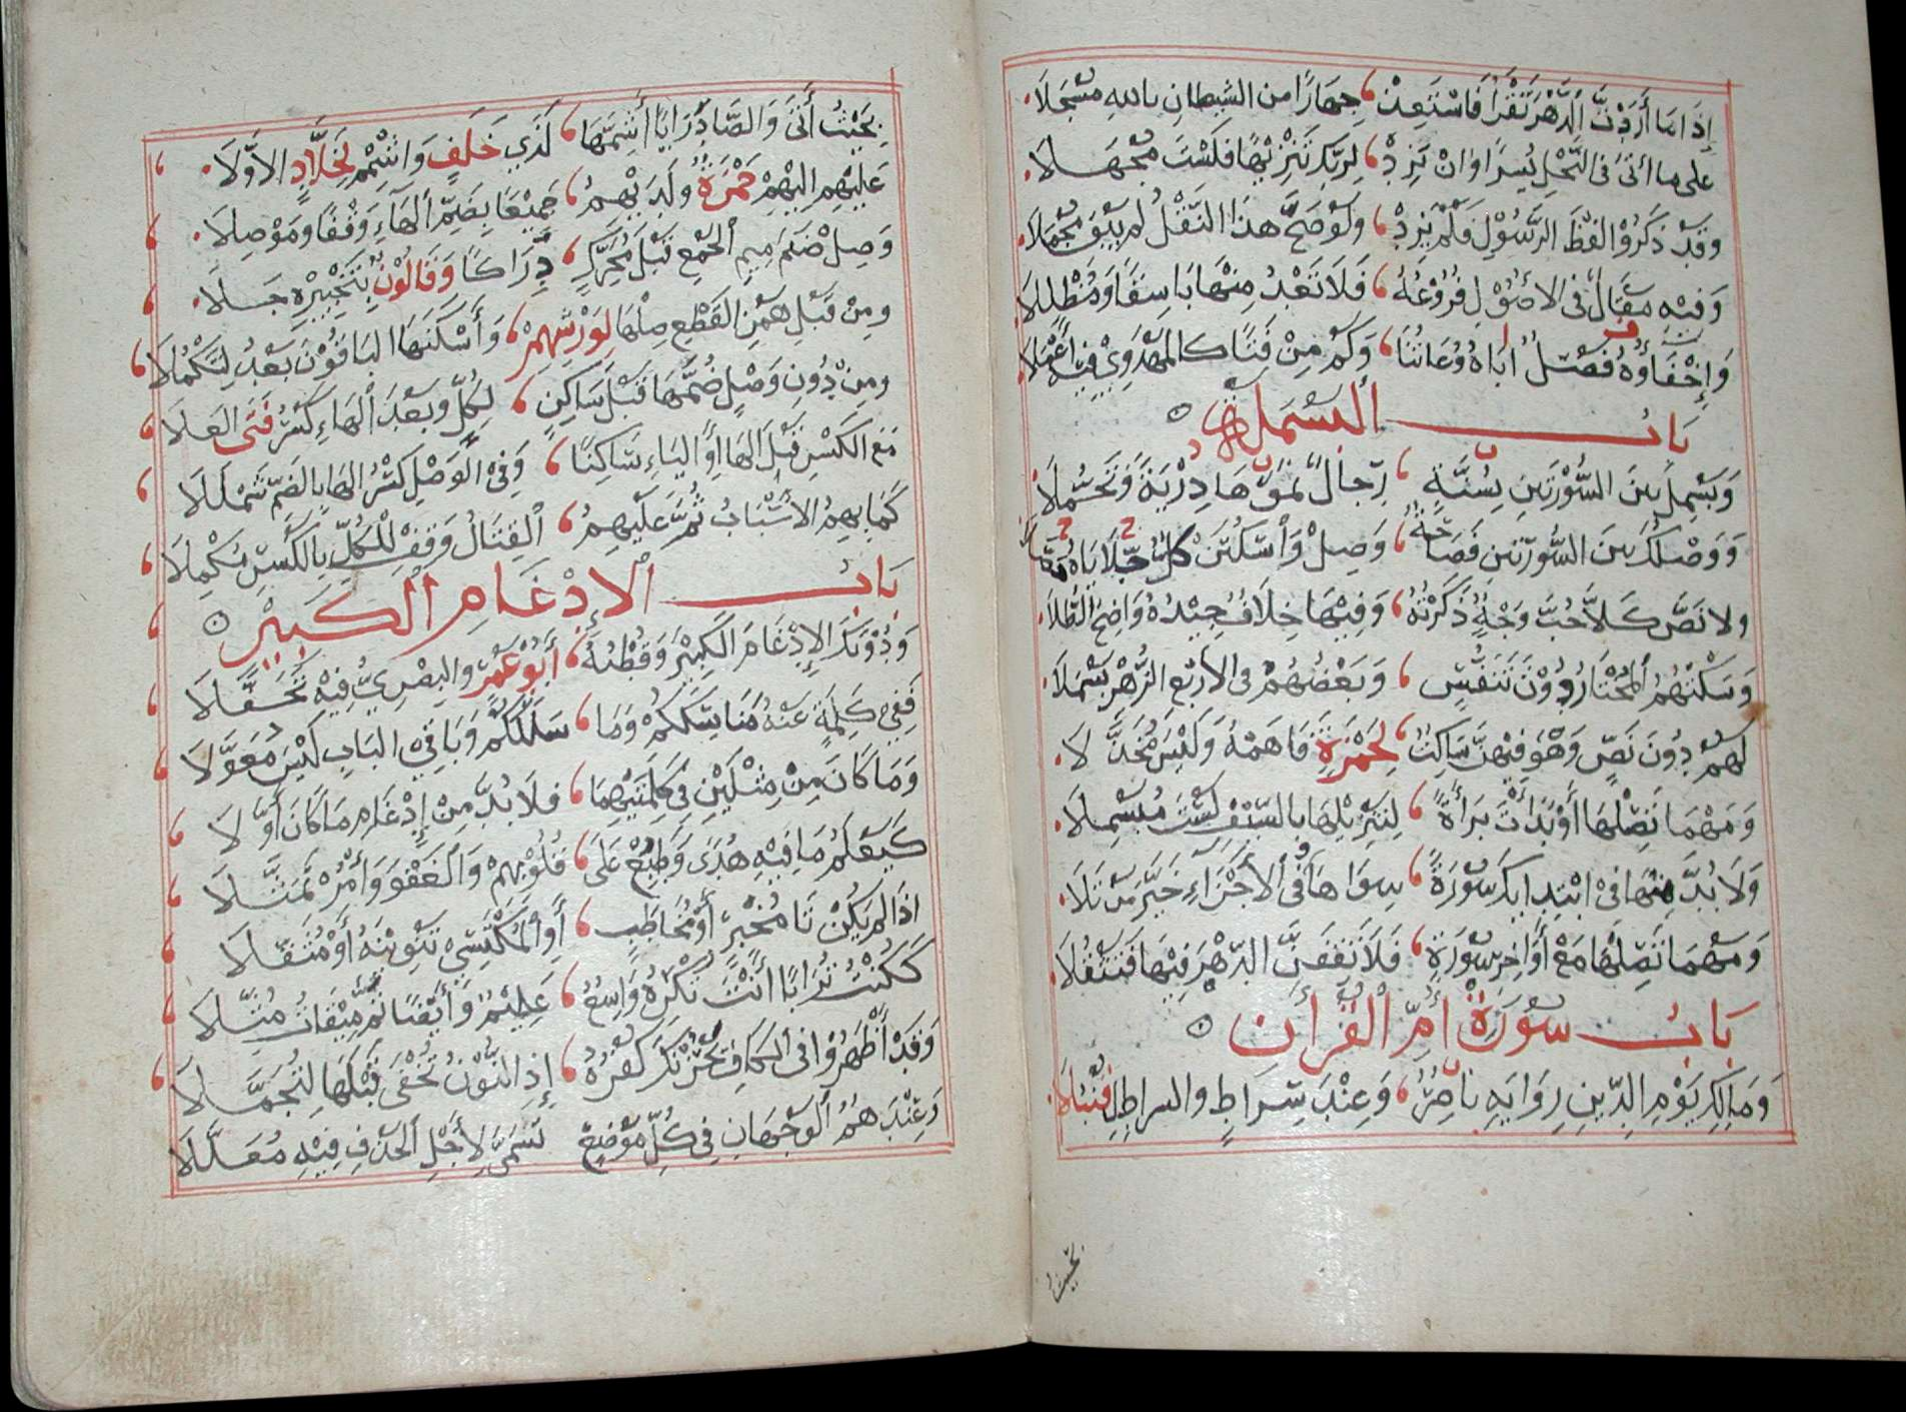 إِذَا مَا أَرَدْتَ الدَّهْرَ تَقْرَأُ فَاسْتَعِذْ ، جِهَارًا من الشيطانِ باللهِ مُسْجَلَا
على ما أتى فى النَّحْلِ يُسرًا وان تَزِدْ ، لِرَبِّكَ تَنْزِيْهًا فلَسْتَ مُجَهَّلا
وقَدْ ذَكَرُوْا لفْظَ الرَّسُوْلِ فلَمْ يَزِدْ ، ولَوْ صَحَّ هذَا النَّقْلُ لم يُبْقِ مُجْمَلَا
وَفيْهِ مقَالٌ فى الاصُوْلِ فرُوْعُهُ ، فَلَا تَعْدُ مِنْهَا بَاسِقًا وَمُظَلِّلَا
وَإِخْفَاؤُهُ فَصْلٌ أبَاهُ وُعَاتُنَا ، وَكَمْ مِنْ فتًى كالمَهْدَوِيْ فيْهِ أعْمَلا
بَابُ البَسْمَلَةِ
وَبَسْمَلَ بينَ السُّوْرَتَينِ بِسُنَّةٍ ، رِجَالٌ نَمَوْهَا دِرْيَةً وَتَحَمُّلَا
وَوَصْلُكَ بينَ السُّورَتَينِ فَصَاحَةٌ ، وَصِلْ وَاسْكُتَنْ كلٌّ جَلَايَاهُ حَصَّلَا
ولا نَصَّ كَلَّا حُبَّ وَجْهٌ ذَكَرْتُهُ ، وَفِيْهَا خِلَافٌ جِيْدُهُ وَاضِحُ الطُّلَا
وَسَكْتُهُمُ الْمُخْتَارُ دُوْنَ تَنَفُّسٍ ، وَبَعْضُهُمْ فى الأرْبَعِ الزُّهْرِ بَسْمَلَا
لَهُمْ دُونَ نَصٍّ وَهْوَ فيْهِنَّ سَاكِتٌ ، لِحَمْزَةَ فَافهَمْهُ وَلَيْسَ مُخَذَّلَا
وَمَهْمَا تَصِلْهَا أَوْ بَدَأْتَ بَرَاءَةً ، لِتَنْزِيْلِهَا بالسَّيْفِ لَسْتَ مُبَسْمِلَا
وَلَا بُدَّ مِنْهَا فى ابْتِدَائِكَ سُوْرَةً ، سِوَاهَا وَفى الأَجْزَاءِ خَيَّرَ مَنْ تَلَا
وَمَهْمَا تَصِلْهَا مَعْ أَوَاخِرِ سُوْرَةٍ ، فَلَا تَقِفَنَّ الدَّهْرَ فيْهَا فَتَثْقُلَا
بَابُ سُورَةِ أُمِّ الْقُرْآنِ
وَمَالِكِ يَوْمِ الدِّيْنِ رِوَايه نَاصِرٌ ، وَعِنْدَ سِرَاطٍ والسراطِ لِ قُنْبُلَا
بحيث
بِحَيْثُ أَتَى وَالصَّادُ زَايًا أَشِمَّهَا ، لَدَى خَلَفٍ وَاشْمِمْ لِخَلَّادٍ الاوَّلَا
عَلَيْهِمْ إلَيْهِمْ حَمْزَةٌ ولَدَيْهِمُ ، جَمِيْعًا بِضَمِّ الْهَاءِ وَقْفًا ومَوْصِلَا
وَصِلْ ضَمَّ مِيمِ الْجَمْعِ قَبْلَ مُحَرَّكٍ ، دِرَاكًا وَقَالُوْنٌ بِتَخْيِيْرِهِ جَلَا
ومِنْ قَبْلِ هَمْزِ القَطْعِ صِلْهَا لِوَرْشِهِمْ ، وَأَسْكَنَهَا البَاقُوْنَ بَعْدُ لِتَكْمُلَا
ومِنْ دُونِ وَصْلٍ ضُمَّهَا قَبْلَ سَاكِنٍ ، لِكُلٍّ وبَعْدَ الْهَاءِ كَسْرُ فتَى العَلَا
مَعَ الكَسْرِ قَبْلَ الهَا أوِ اليَاءِ سَاكِنًا ، وَفى الوَصْلِ كَسْرُ الهَاءِ بالضَّمِّ شَمْلَلَا
كَمَا بِهِمُ الأسْبَابُ ثُمَّ عَلَيْهِمُ ، الْقِتَالُ وَقِفْ لِلْكُلِّ بِالكَسْرِ مُكْمِلَا
بَابُ الْإِدْغَامِ الْكَبِيْرِ
وَدُوْنَكَ الْإِدْغَامَ الكَبِيْرَ وَقُطْبُهُ ، أَبُوْ عَمْرٍو البِصْرِيُّ فِيْهِ تَحَفَّلَا
فَفِي كَلِمَةٍ عَنْهُ مَنَاسِكَكُمْ وَمَا ، سَلَكَكُّمْ وَبَاقِي البَابِ لَيْسَ مُعَوَّلَا
وَمَا كَانَ مِنْ مِثْلَيْنِ فِي كِلْمَتَيْهِمَا ، فَلَا بُدَّ مِنْ إِدْغَامِ مَا كَانَ أَوَّلَا
كَيَعْلَمُ مَا فِيْهِ هُدًى وَطُبِعْ عَلَى ، قُلُوْبِهِمْ وَالْعَفْوَ وَأْمُرْ تَمَثَّلَا
اذَا لم يَكُنْ تَا مُخْبِرٍ أَوْ مُخَاطَبٍ ، أَوِ الْمُكْتَسِي تَنْوِيْنَهُ أَوْ مُثَقَّلَا
كَكُنْتُ تُرَابًا أَنْتَ تُكْرِهُ وَاسِعٌ ، عَلِيْمٌ وَأَيْضًا تَمَّ مِيْقَاتُ مُثِّلَا
وَقَدْ أَظْهَرُوْا فى الْكَافِ يَحْزُنْكَ كُفْرُهُ ، إِذِ النُّوْنُ تُخْفَى قَبْلَهَا لِتُجَمَّلَا
وَعِنْدَهُمُ الْوَجْهَانِ فِي كُلِّ مَوْضِعٍ تَسَمَّى لِأَجْلِ الْحَذْفِ فِيْهِ مُعَلَّلَا